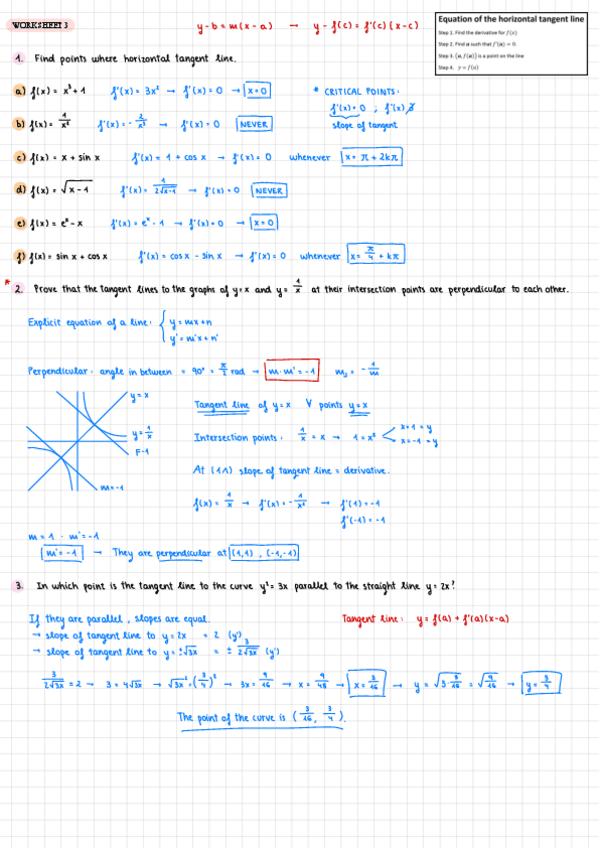 WORKSHEET 3
y-b = m(x-a) → y-f(c) = f'(c)(x-c)
Equation of the horizontal tangent line
Step 1. Find the derivative for f(x)
Step 2. Find a such that f'(a) = 0.
Step 3. (a, f(a)) is a point on the line
Step 4. y = f(a)
1. Find points where horizontal tangent line.
a) f(x) = x³+1 f'(x) = 3x² → f'(x) = 0 → x=0
* CRITICAL POINTS:
f'(x) = 0 ; f'(x) ∄
slope of tangent
b) f(x) = 1/x² f'(x) = -2/x³ → f'(x) = 0 NEVER
c) f(x) = x + sin x f'(x) = 1 + cos x → f'(x) = 0 whenever x = π + 2kπ
d) f(x) = √x-1 f'(x) = 1/2√x-1 → f'(x) = 0 NEVER
e) f(x) = eˣ - x f'(x) = eˣ - 1 → f'(x) = 0 → x=0
f) f(x) = sin x + cos x f'(x) = cos x - sin x → f'(x) = 0 whenever x = π/4 + kπ
* 2. Prove that the tangent lines to the graphs of y=x and y = 1/x at their intersection points are perpendicular to each other.
Explicit equation of a line: { y = mx+n
y' = m'x+n'
Perpendicular: angle in between = 90° = π/2 rad → m·m' = -1 m₂ = -1/m
y=x
y = 1/x
F-1
m=-1
Tangent line of y=x ∀ points y=x
Intersection points: 1/x = x → 1=x² < x=1=y
x=-1=y
At (1,1) slope of tangent line = derivative.
f(x) = 1/x → f'(x) = -1/x² → f'(1) = -1
f'(-1) = -1
m=1 · m'=-1
m'=-1 → They are perpendicular at (1,1), (-1,-1)
3. In which point is the tangent line to the curve y² = 3x parallel to the straight line y = 2x?
If they are parallel, slopes are equal.
Tangent line: y = f(a) + f'(a)(x-a)
→ slope of tangent line to y = 2x = 2 (y')
→ slope of tangent line to y = ±√3x = ± 3/2√3x (y')
3/2√3x = 2 → 3 = 4√3x → √3x² = (3/4)² → 3x = 9/16 → x = 9/48 → x = 3/16 → y = √3·3/16 = √9/16 → y = 3/4
The point of the curve is (3/16, 3/4).